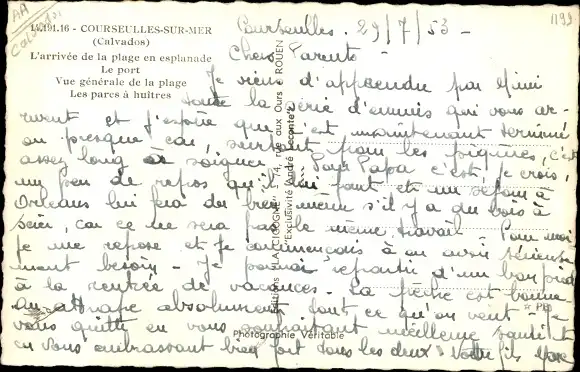 AA
Calvados
1199
14.191.16 - COURSEULLES-SUR-MER
(Calvados)
L'arrivée de la plage en esplanade
Le port
Vue générale de la plage
Les parcs à huîtres
Courseulles. 29/7/53 -
Chers Parents -
Je viens d'apprendre par Mimi
toute la série d'ennuis qui vous ar-
rivent et j'espère que c'est maintenant terminé
ou presque car, surtout pour les piqûres, c'est
assez long à soigner. Pour Papa c'est, je crois,
un peu de repos qu'il lui faut et un séjour à
Orléans lui fera du bien même s'il y a du bois à
scier, car ce ne sera pas le même travail - Pour moi
je me repose et je commençais à en avoir sérieuse-
ment besoin - Je pourrai repartir d'un bon pied
à la rentrée de vacances - La pêche est bonne
on attrape absolument tout ce qu'on veut - Je
vous quitte en vous souhaitant meilleure santé et
en vous embrassant bien fort tous les deux. Votre fils
Editions "LA CIGOGNE" - 74, rue aux Ours - ROUEN
"Exclusivité André Leconte"
Photographie Véritable